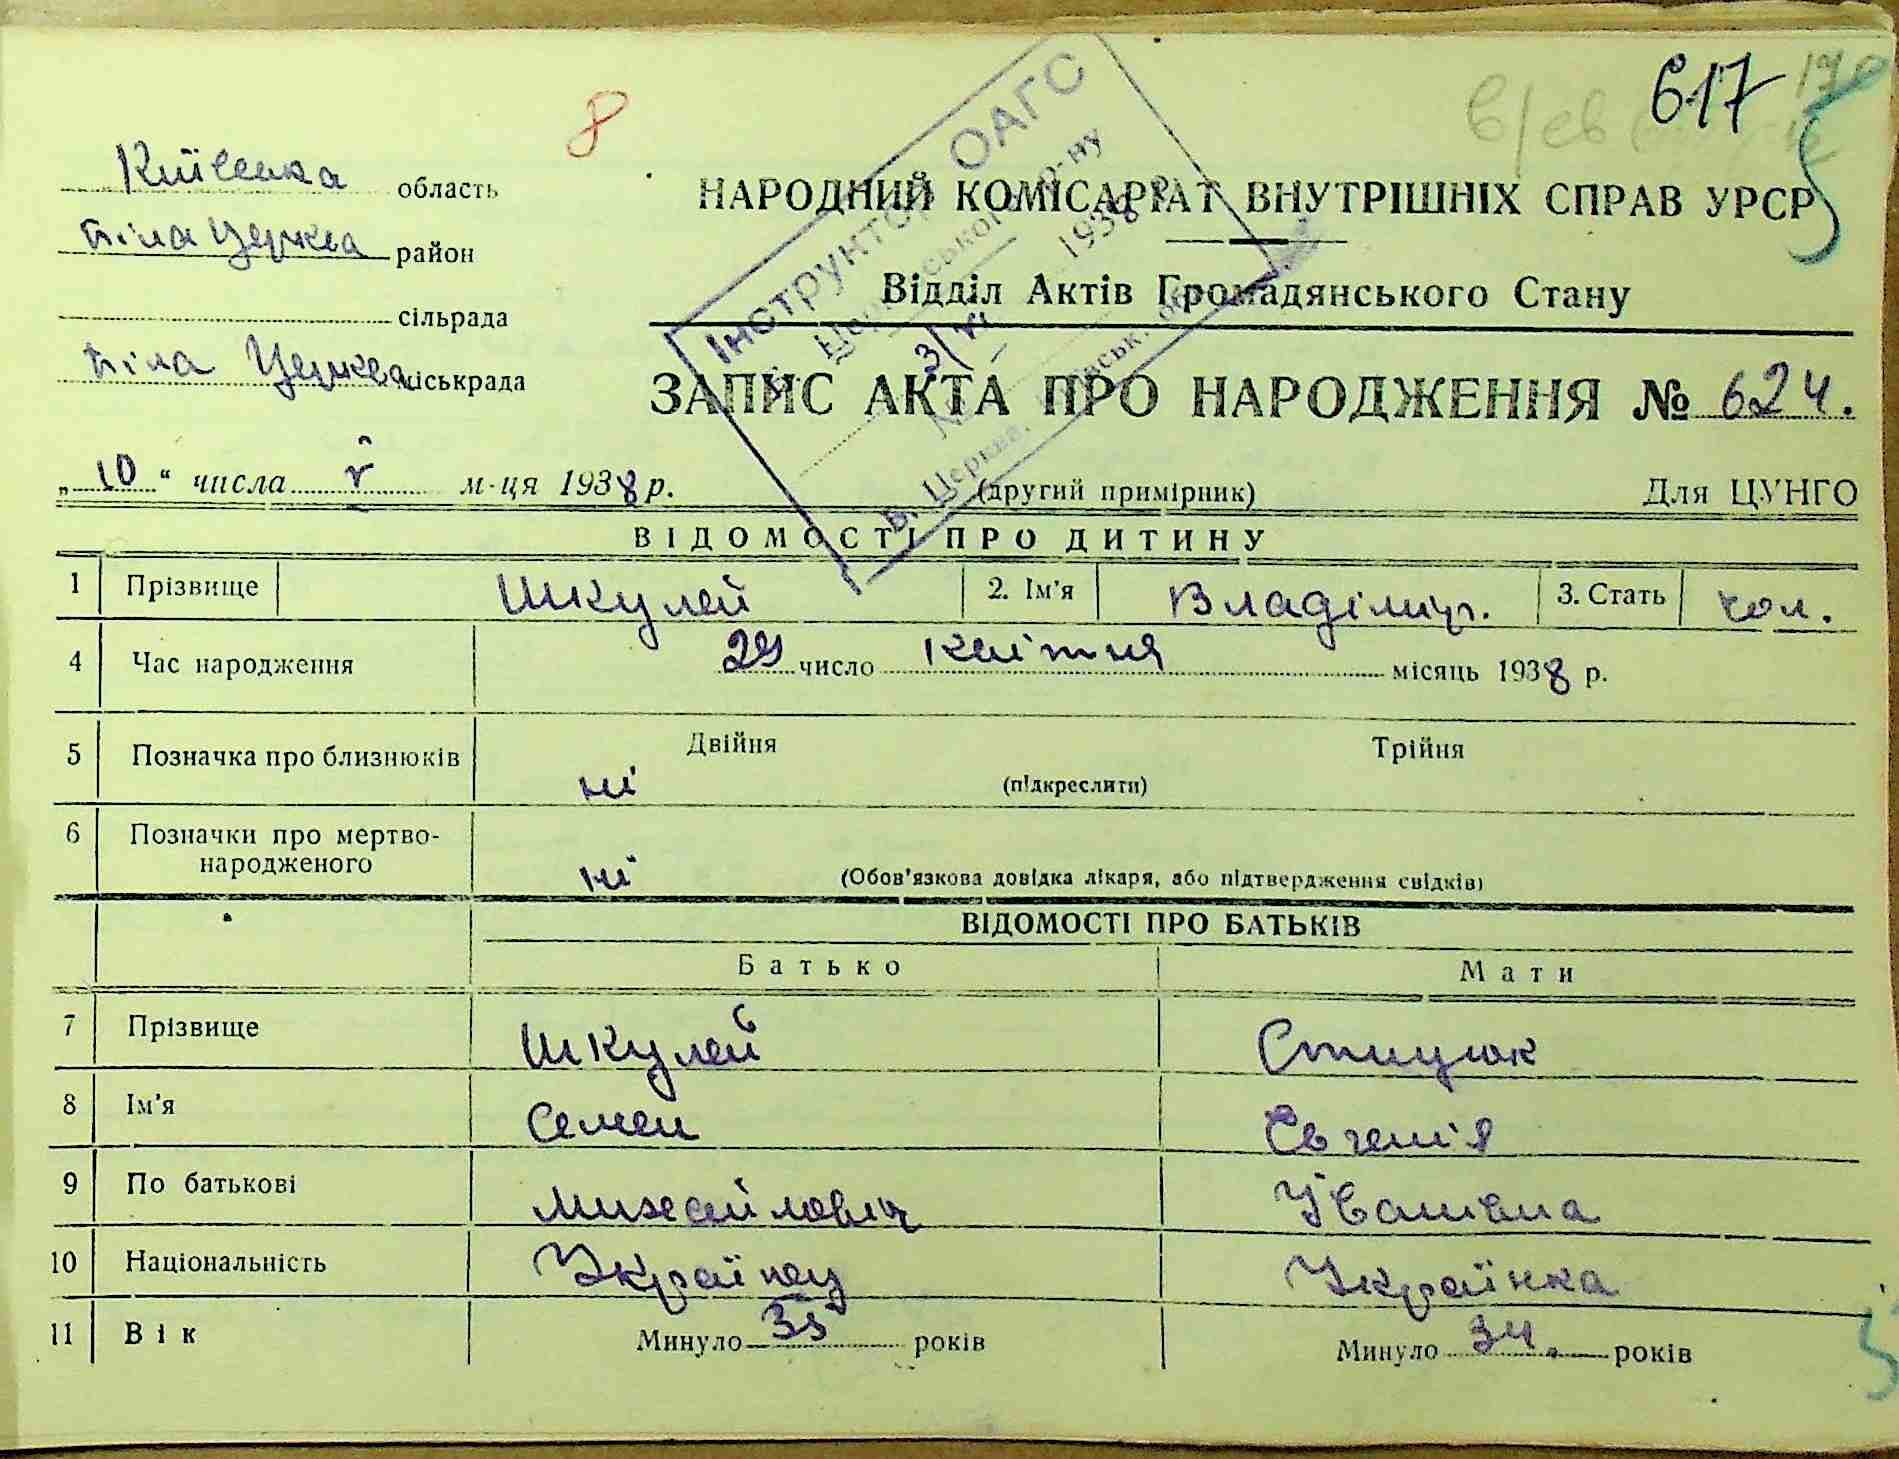 617
8
Київська область
Біла Церква район
сільрада
Біла Церква міськрада
НАРОДНИЙ КОМІСАРІАТ ВНУТРІШНІХ СПРАВ УРСР
Відділ Актів Громадянського Стану
ЗАПИС АКТА ПРО НАРОДЖЕННЯ № 624.
Інструктор ОАГС
1938 р.
„10“ числа V м-ця 1938 р. (другий примірник) Для ЦУНГО
ВІДОМОСТІ ПРО ДИТИНУ
1 Прізвище Шкулей 2. Ім'я Владімир. 3. Стать чол.
4 Час народження 29 число Квітня місяць 1938 р.
5 Позначка про близнюків ні Двійня Трійня
(підкреслити)
6 Позначки про мертво-
народженого ні (Обов'язкова довідка лікаря, або підтвердження свідків)
ВІДОМОСТІ ПРО БАТЬКІВ
Батько Мати
7 Прізвище Шкулей Стицюк
8 Ім'я Семен Євгенія
9 По батькові Михайлович Іванівна
10 Національність Українец Українка
11 Вік Минуло 35 років Минуло 34. років